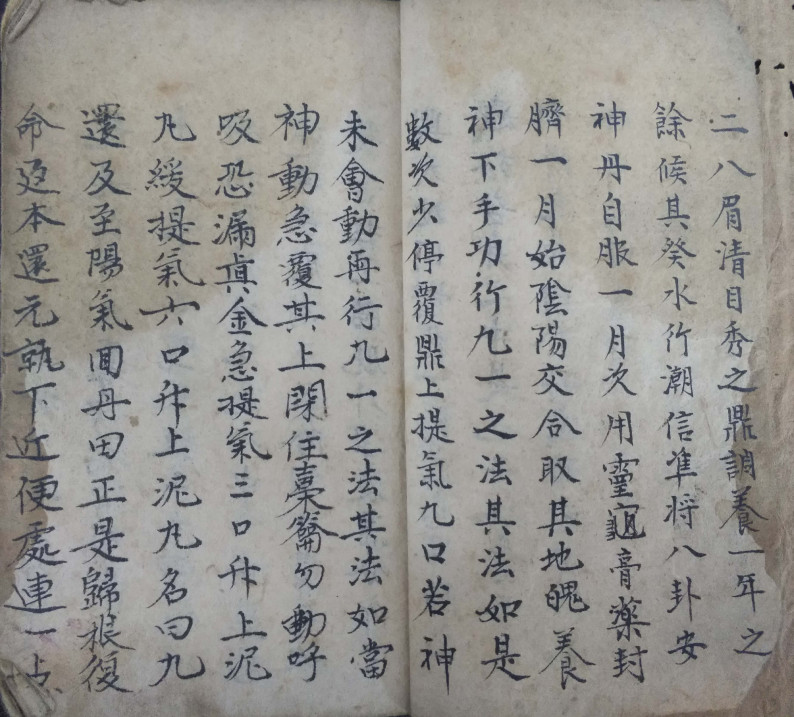 二八眉清目秀之鼎調養一年之
餘候其癸水行潮信準將八卦安
神丹自服一月次用靈龜膏藥封
臍一月始陰陽交合取其地魄養
神下手功行九一之法其法如是
數次少停覆鼎上提氣九口若神
未會動再行九一之法其法如當
神動急覆其上閉住橐籥勿動呼
吸恐漏真金急提氣三口升上泥
丸緩提氣六口升上泥丸名曰九
還及至陽氣回丹田正是歸根復
命返本還元執下近便處連一点